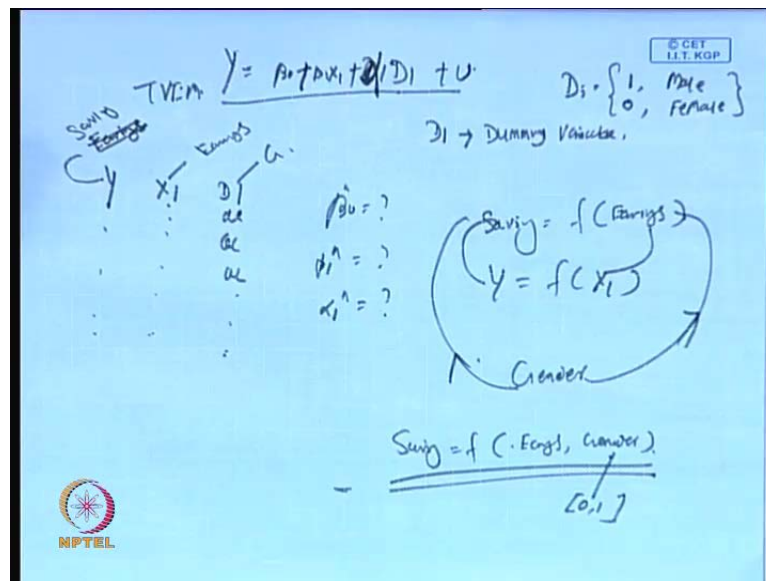 © CET
I.I.T. KGP
TVEM Y = β0 + βX1 + α1 D1 + U
Di = { 1, Male
0, Female }
D1 → Dummy Variable.
Saving
Earnings
Y X1 D1 G.
β0^ = ?
β1^ = ?
α1^ = ?
Saving = f (Earnings)
Y = f(X1)
Gender
Saving = f (Earngs, Gender)
[0,1]
NPTEL